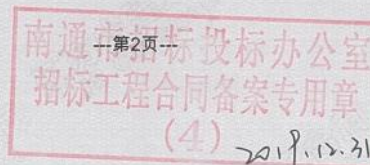 ---第2页---
南通市招标投标办公室
招标工程合同备案专用章
(4)
2019.12.31